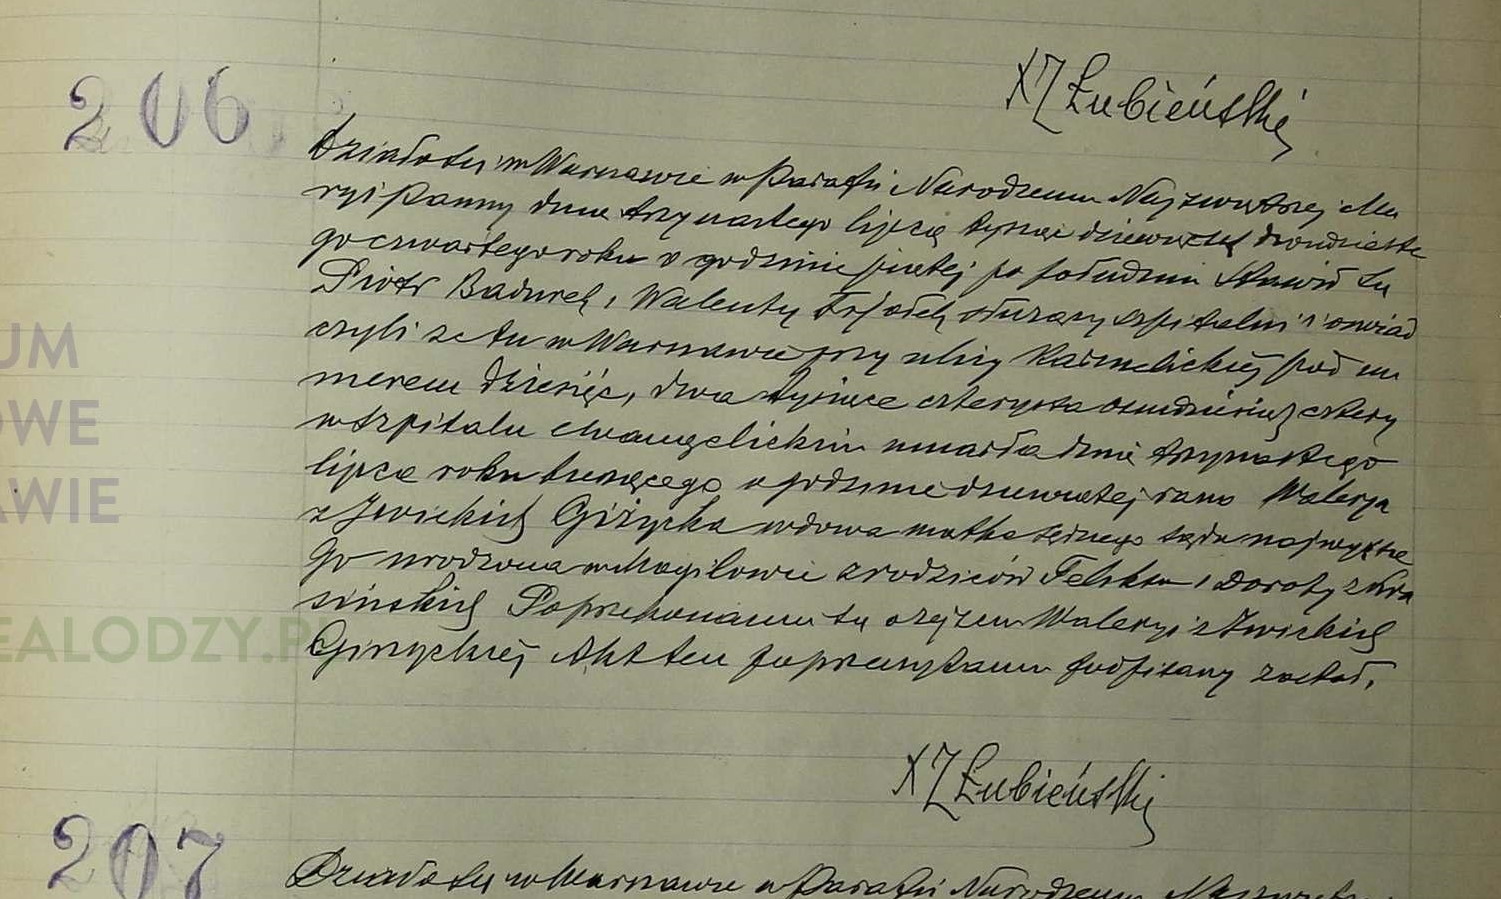 X J Łubieński
206
Działo się w Warszawie w Parafii Narodzenia Najświętszej Ma
ryi Panny dnia trzynastego lipca tysiąc dziewięćset dwudzieste
go czwartego roku o godzinie piątej po południu Stawili się
Piotr Badurek i Walenty służący szpitalni i oświad
czyli że tu w Warszawie przy ulicy Karmelickiej pod nu
merem dziesięć, dwa tysiące czterysta osmdziesiąt cztery
w szpitalu ewangelickim umarła dnia trzynastego
lipca roku bieżącego o godzinie dziewiątej rano Walerya
z Iwickich Giżycka wdowa matka sędziego sądu najwyższe
go urodzona w Mogilowie z rodziców Feliksa i Doroty z Kra
sińskich Po przekonaniu się o zejściu Waleryi z Iwickich
Giżyckiej Akt ten po przeczytaniu podpisany został.
X J Łubieński
207
Działo się w Warszawie w Parafii Narodzenia
UM
OWE
AWIE
EALODZY.P